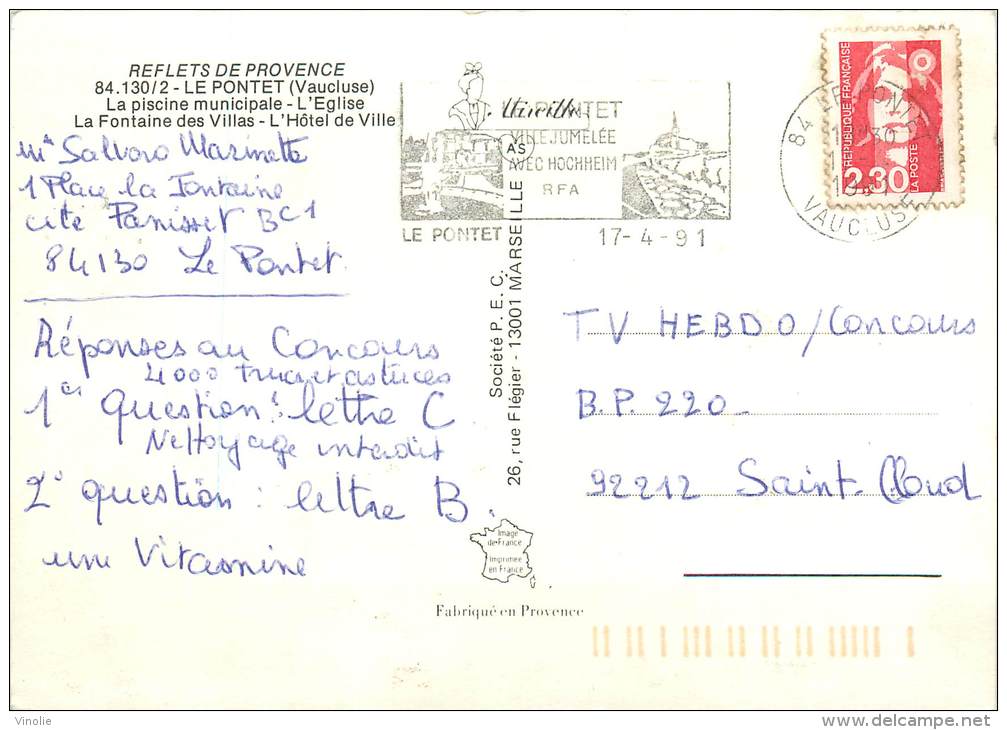 REFLETS DE PROVENCE
84.130/2 - LE PONTET (Vaucluse)
La piscine municipale - L'Eglise
La Fontaine des Villas - L'Hôtel de Ville
Mireille
LE PONTET
VILLE JUMELÉE
AVEC HOCHHEIM
RFA
LE PONTET
17-4-91
84 LE PONTET
VAUCLUSE
RÉPUBLIQUE FRANÇAISE
2,30
LA POSTE
Salvoro Marinette
1 Place la Fontaine
cité Panisset Bc1
84130 Le Pontet
Réponses au Concours
4000 trucs et astuces
1er question : lettre C
Nettoyage interdit
2° question : lettre B.
une Vitamine
Société P. E. C.
26, rue Flégier - 13001 MARSEILLE
AS
TV HEBDO/Concours
B.P. 220
92212 Saint-Cloud
Image
de France
Imprimée
en France
Fabriqué en Provence
Vinolie
delcampe.net